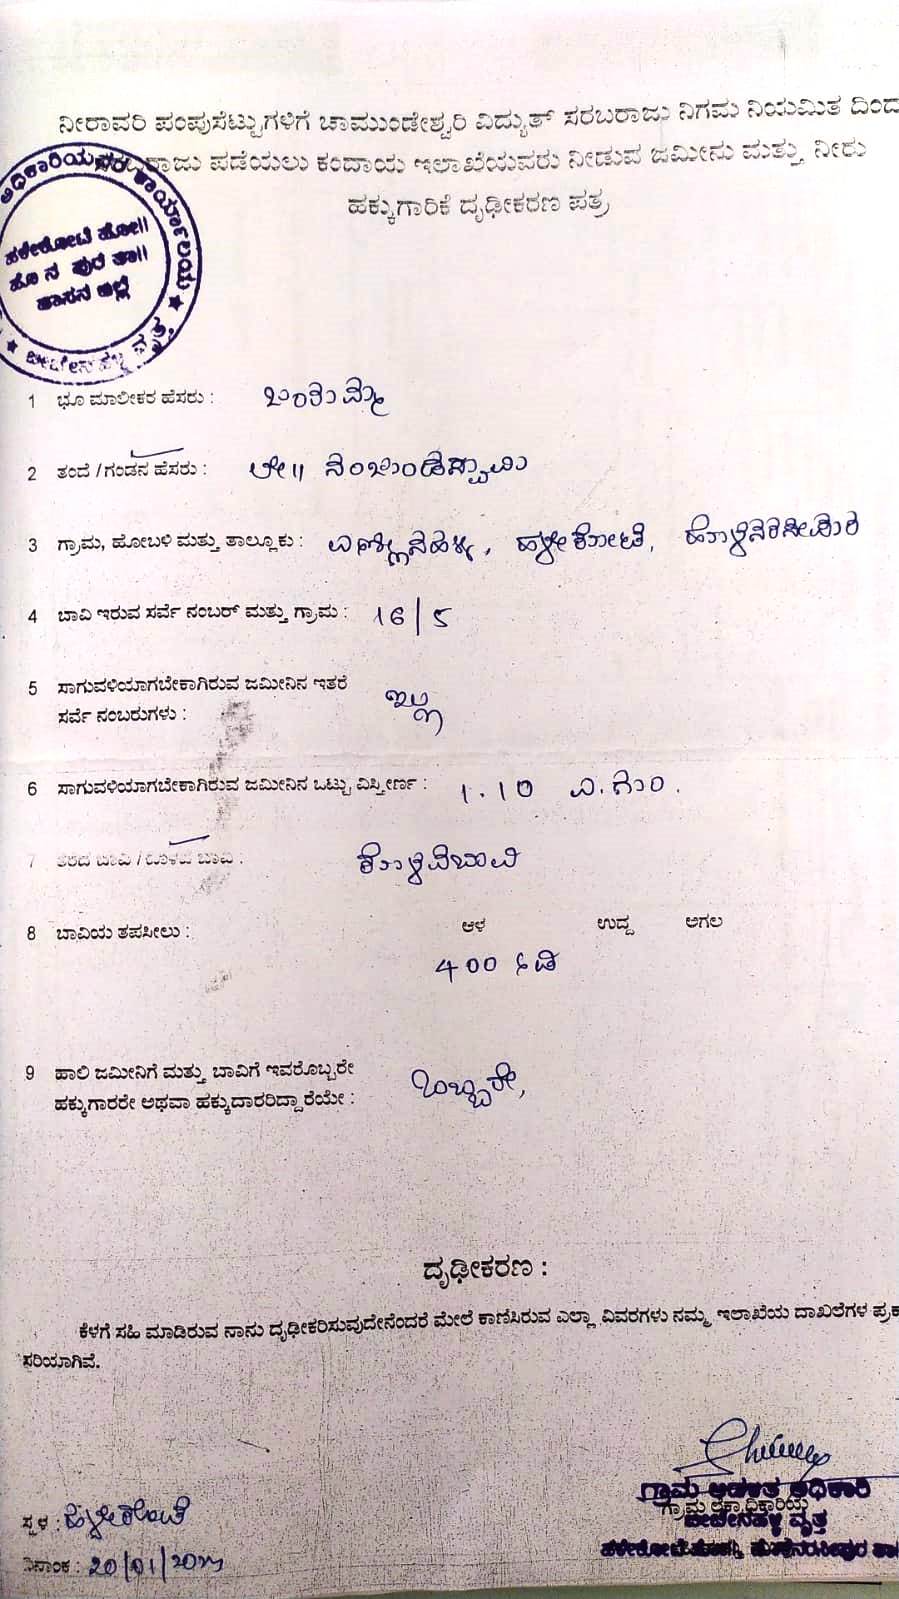 ನೀರಾವರಿ ಪಂಪುಸೆಟ್ಟುಗಳಿಗೆ ಚಾಮುಂಡೇಶ್ವರಿ ವಿದ್ಯುತ್ ಸರಬರಾಜು ನಿಗಮ ನಿಯಮಿತ ದಿಂದ
ಸರಬರಾಜು ಪಡೆಯಲು ಕಂದಾಯ ಇಲಾಖೆಯವರು ನೀಡುವ ಜಮೀನು ಮತ್ತು ನೀರು
ಹಕ್ಕುಗಾರಿಕೆ ದೃಢೀಕರಣ ಪತ್ರ
ಹಳೇಕೋಟೆ ಹೋ||
ಹೊ ನ ಪುರ ತಾ||
ಹಾಸನ ಜಿಲ್ಲೆ
1 ಭೂ ಮಾಲೀಕರ ಹೆಸರು :
2 ತಂದೆ / ಗಂಡನ ಹೆಸರು : ಲೇ|| ನಂಜುಂಡಸ್ವಾಮಿ
3 ಗ್ರಾಮ, ಹೋಬಳಿ ಮತ್ತು ತಾಲ್ಲೂಕು : ಹಳೇಕೋಟೆ, ಹೊಳೆನರಸೀಪುರ
4 ಬಾವಿ ಇರುವ ಸರ್ವೆ ನಂಬರ್ ಮತ್ತು ಗ್ರಾಮ : 16/5
5 ಸಾಗುವಳಿಯಾಗಬೇಕಾಗಿರುವ ಜಮೀನಿನ ಇತರೆ
ಸರ್ವೆ ನಂಬರುಗಳು : ಇಲ್ಲ
6 ಸಾಗುವಳಿಯಾಗಬೇಕಾಗಿರುವ ಜಮೀನಿನ ಒಟ್ಟು ವಿಸ್ತೀರ್ಣ : 1.10 ಎ.ಗುಂ.
7 ತೆರೆದ ಬಾವಿ / ಕೊಳವೆ ಬಾವಿ : ಕೊಳವೆಬಾವಿ
8 ಬಾವಿಯ ತಪಸೀಲು : ಆಳ ಉದ್ದ ಅಗಲ
400 ಅಡಿ
9 ಹಾಲಿ ಜಮೀನಿಗೆ ಮತ್ತು ಬಾವಿಗೆ ಇವರೊಬ್ಬರೇ
ಹಕ್ಕುಗಾರರೇ ಅಥವಾ ಹಕ್ಕುದಾರರಿದ್ದಾರೆಯೇ : ಒಬ್ಬರೇ,
ದೃಢೀಕರಣ :
ಕೆಳಗೆ ಸಹಿ ಮಾಡಿರುವ ನಾನು ದೃಢೀಕರಿಸುವುದೇನೆಂದರೆ ಮೇಲೆ ಕಾಣಿಸಿರುವ ಎಲ್ಲಾ ವಿವರಗಳು ನಮ್ಮ ಇಲಾಖೆಯ ದಾಖಲೆಗಳ ಪ್ರಕ
ಸರಿಯಾಗಿವೆ.
ಗ್ರಾಮ ಆಡಳಿತ ಅಧಿಕಾರಿ
ಗ್ರಾಮ ಲೆಕ್ಕಾಧಿಕಾರಿಯ
ವೃತ್ತ
ಸ್ಥಳ : ಹಳೇಕೋಟೆ
ದಿನಾಂಕ : 20/01/